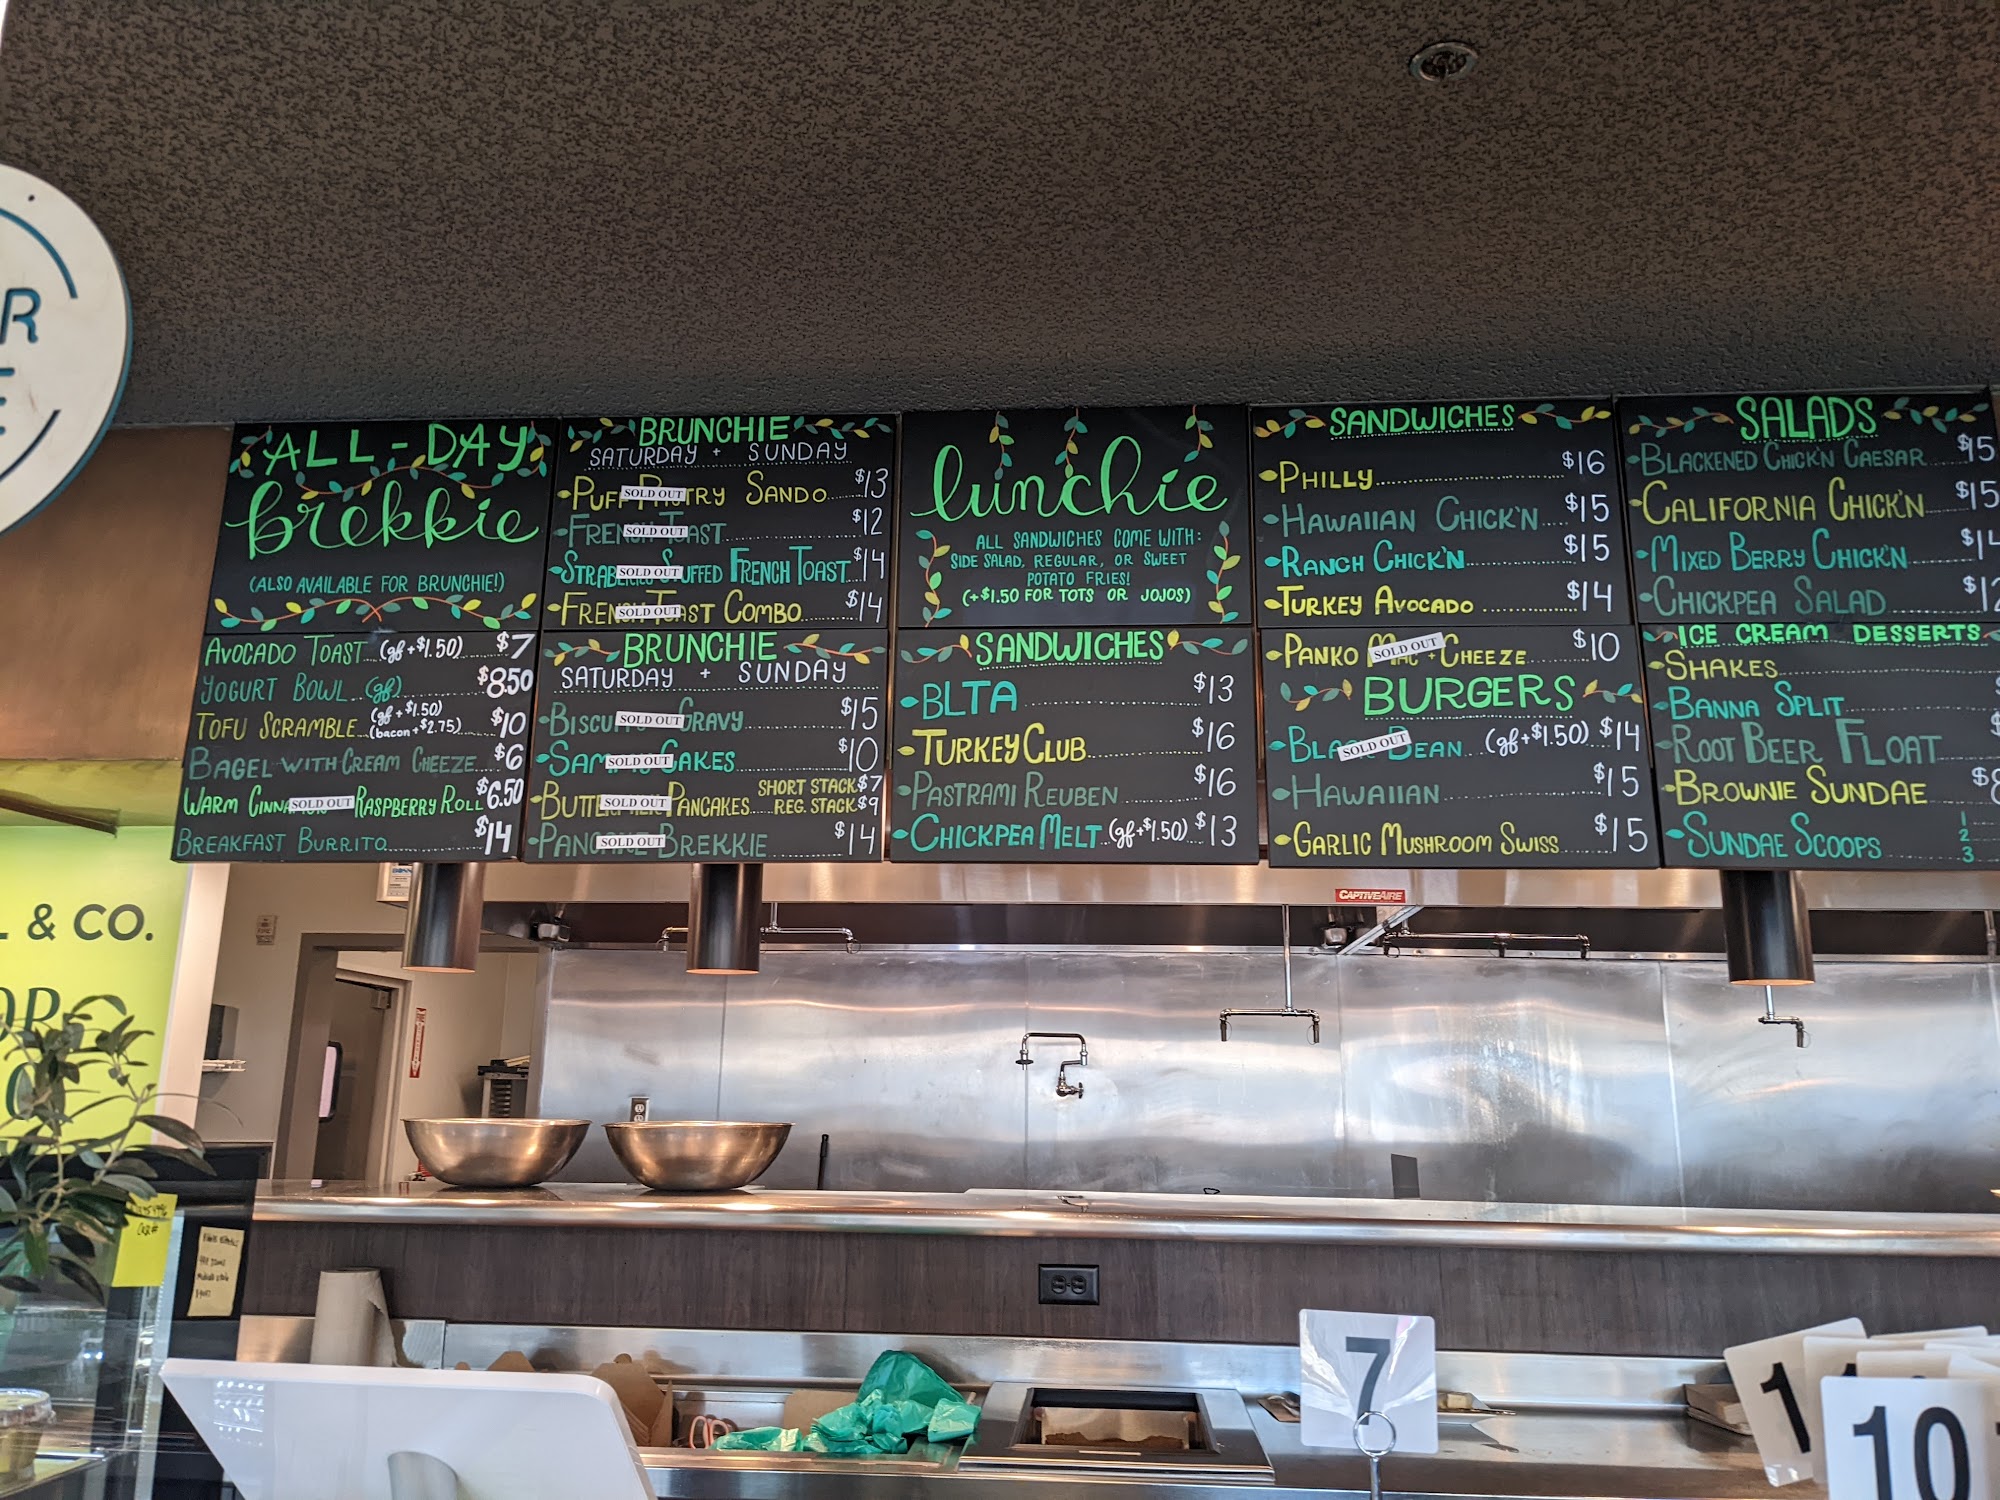 ALL-DAY
brekkie
(ALSO AVAILABLE FOR BRUNCHIE!)
AVOCADO TOAST (gf+$1.50) $7
YOGURT BOWL (gf) $8.50
TOFU SCRAMBLE (gf+$1.50) (bacon+$2.75) $10
BAGEL WITH CREAM CHEEZE $6
WARM SOLD OUT RASPBERRY ROLL $6.50
BREAKFAST BURRITO $14
BRUNCHIE
SATURDAY + SUNDAY
SOLD OUT SANDO $13
SOLD OUT $12
SOLD OUT FRENCH TOAST $14
SOLD OUT COMBO $14
BRUNCHIE
SATURDAY + SUNDAY
SOLD OUT GRAVY $15
SOLD OUT CAKES $10
SOLD OUT PANCAKES SHORT STACK $7
REG. STACK $9
SOLD OUT BREKKIE $14
lunchie
ALL SANDWICHES COME WITH:
SIDE SALAD, REGULAR, OR SWEET
POTATO FRIES!
(+$1.50 FOR TOTS OR JOJOS)
SANDWICHES
BLTA $13
TURKEY CLUB $16
PASTRAMI REUBEN $16
CHICKPEA MELT (gf+$1.50) $13
SANDWICHES
PHILLY $16
HAWAIIAN CHICK'N $15
RANCH CHICK'N $15
TURKEY AVOCADO $14
PANKO SOLD OUT CHEEZE $10
BURGERS
SOLD OUT BEAN (gf+$1.50) $14
HAWAIIAN $15
GARLIC MUSHROOM SWISS $15
SALADS
BLACKENED CHICK'N CAESAR $15
CALIFORNIA CHICK'N $15
MIXED BERRY CHICK'N
CHICKPEA SALAD
ICE CREAM DESSERTS
SHAKES
BANNA SPLIT
ROOT BEER FLOAT
BROWNIE SUNDAE
SUNDAE SCOOPS 1
2
3
CAPTIVEAIRE
& CO.
7
10